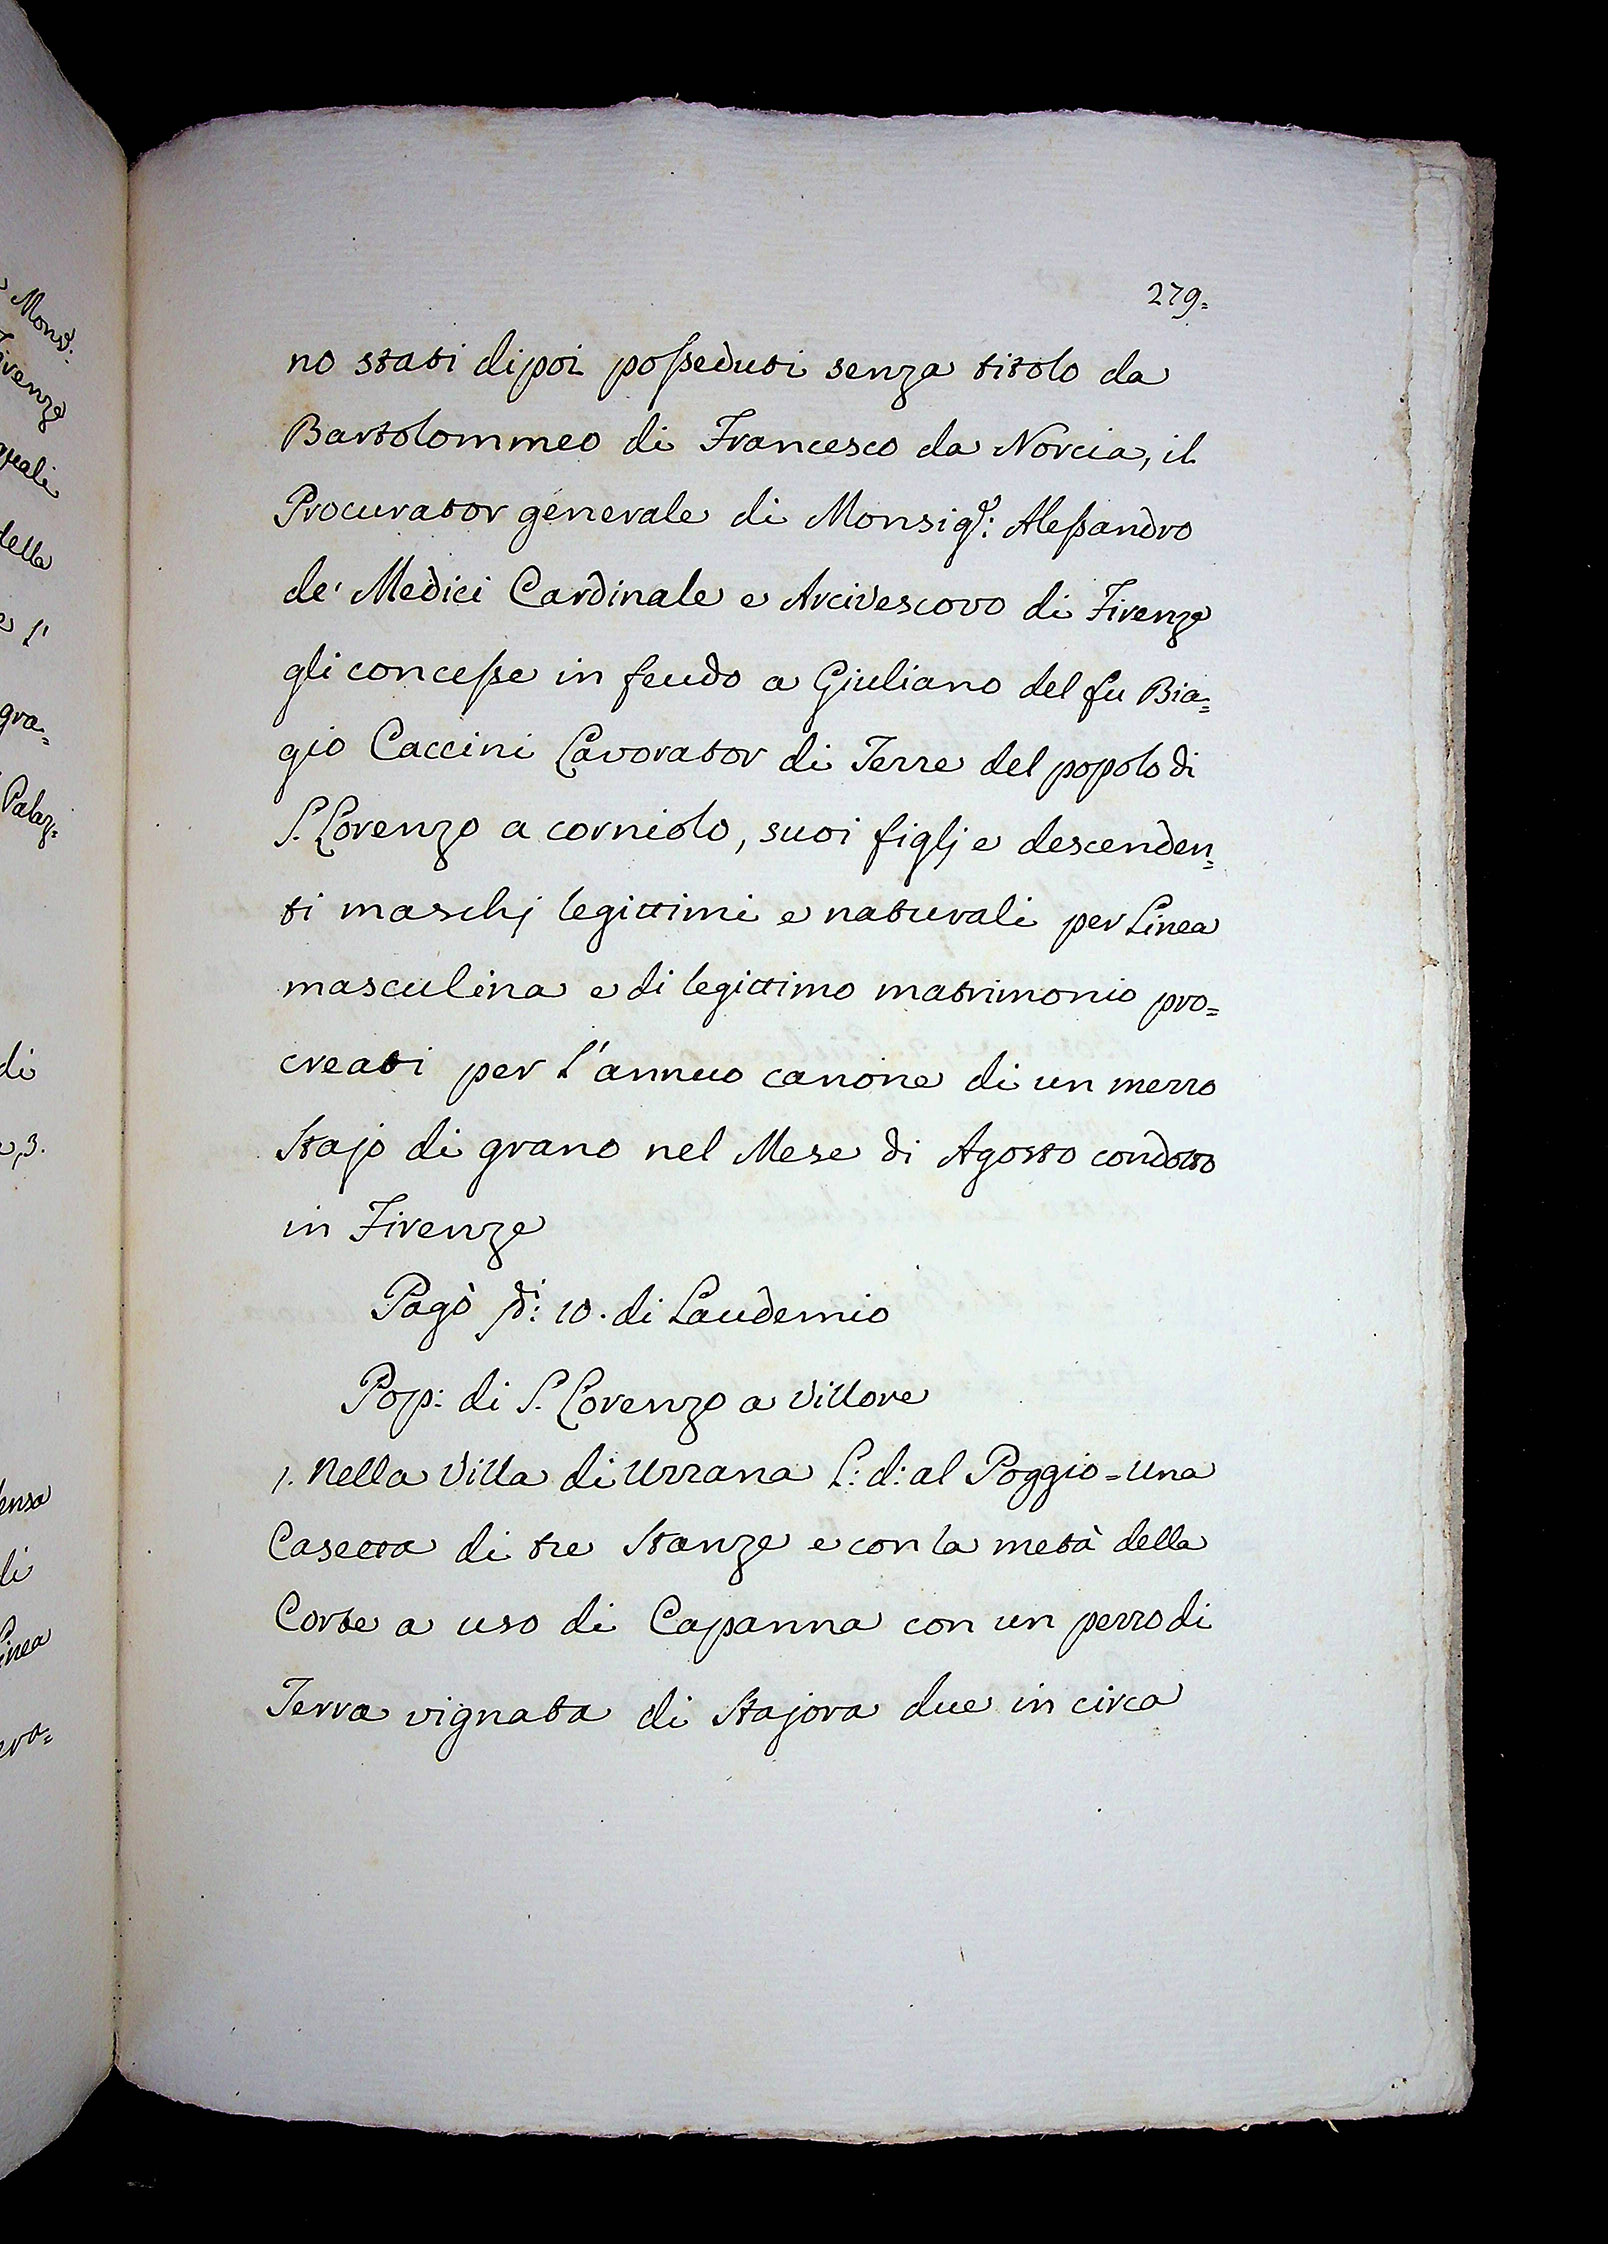 279=
no stati dipoi posseduti senza titolo da
Bartolommeo di Francesco da Norcia, il
Procurator generale di Monsig.r: Alessandro
de' Medici Cardinale e Arcivescovo di Firenze
gli concesse in feudo a Giuliano del fu Bia=
gio Caccini Lavorator di Terre del popolo di
S. Lorenzo a corniolo, suoi figlj e descenden=
ti maschj legittimi e naturali per Linea
masculina e di legittimo matrimonio pro=
creati per l'annuo canone di un mezzo
Stajo di grano nel Mese di Agosto condotto
in Firenze
Pagò 10. di Laudemio
Pop: di S. Lorenzo a Villore
1. Nella Villa di Uzzana L: d: al Poggio = Una
Casetta di tre Stanze e con la metà della
Corte a uso di Capanna con un pezzo di
Terra vignata di Stajora due in circa
Monsr:
Firenze
quali
della
e l'
gra=
Palaz=
di
3.
di
Linea